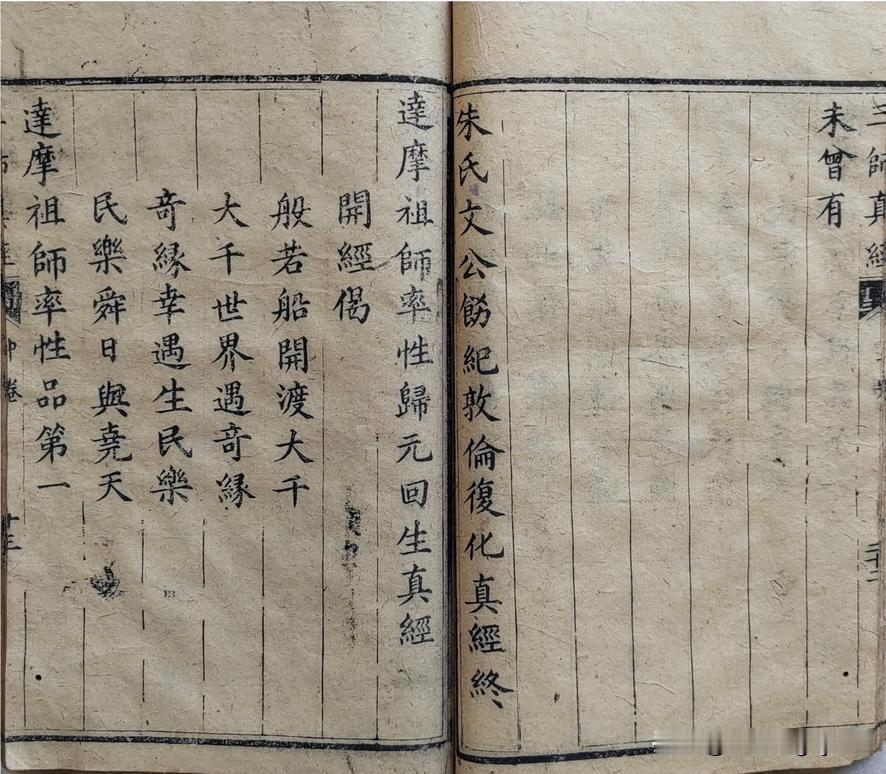 三師真經
未曾有
朱氏文公飭紀敦倫復化真經終
達摩祖師率性歸元回生真經
開經偈
般若船開渡大千
大千世界遇奇緣
奇緣幸遇生民樂
民樂舜日與堯天
達摩祖師率性品第一
中卷
十三